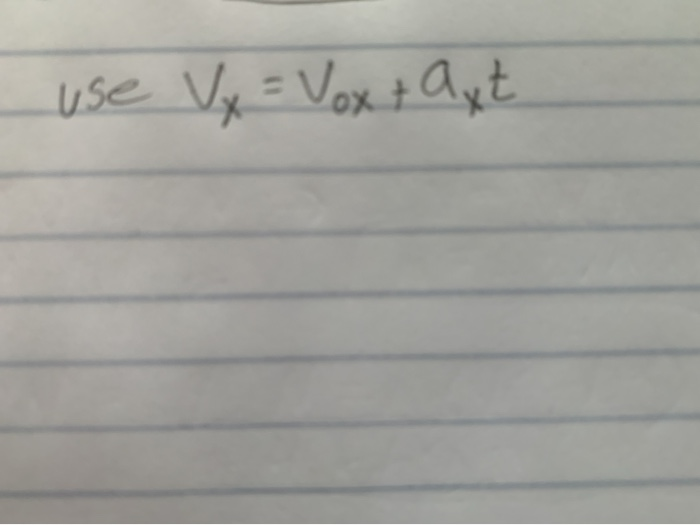 use Vₓ = V₀ₓ + aₓt